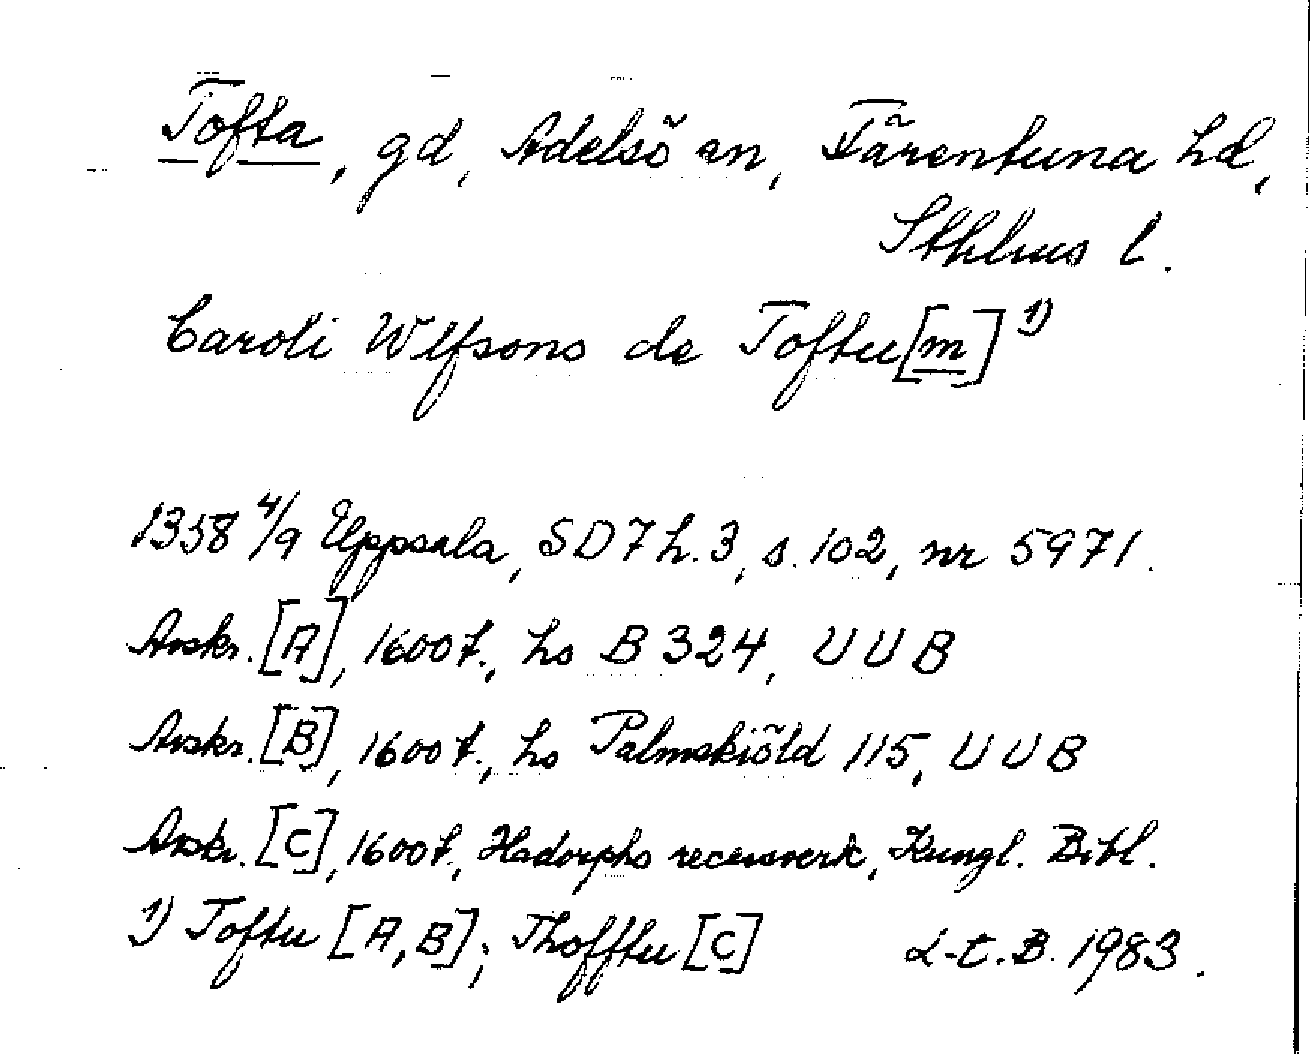 Tofta, gd, Adelsö sn, Färentuna hd,
Sthlms l.
Caroli Wlfsons de Toftu[m] 1)
1358 4/9 Uppsala, SD 7 h. 3, s. 102, nr 5971.
Avskr. [A], 1600 t., hs B 324, UUB
Avskr. [B], 1600 t., hs Palmskiöld 115, UUB
Avskr. [C], 1600 t., Hadorphs recessverk, Kungl. Bibl.
1) Toftu [A, B]; Thofftu [C] L-E.B. 1983.